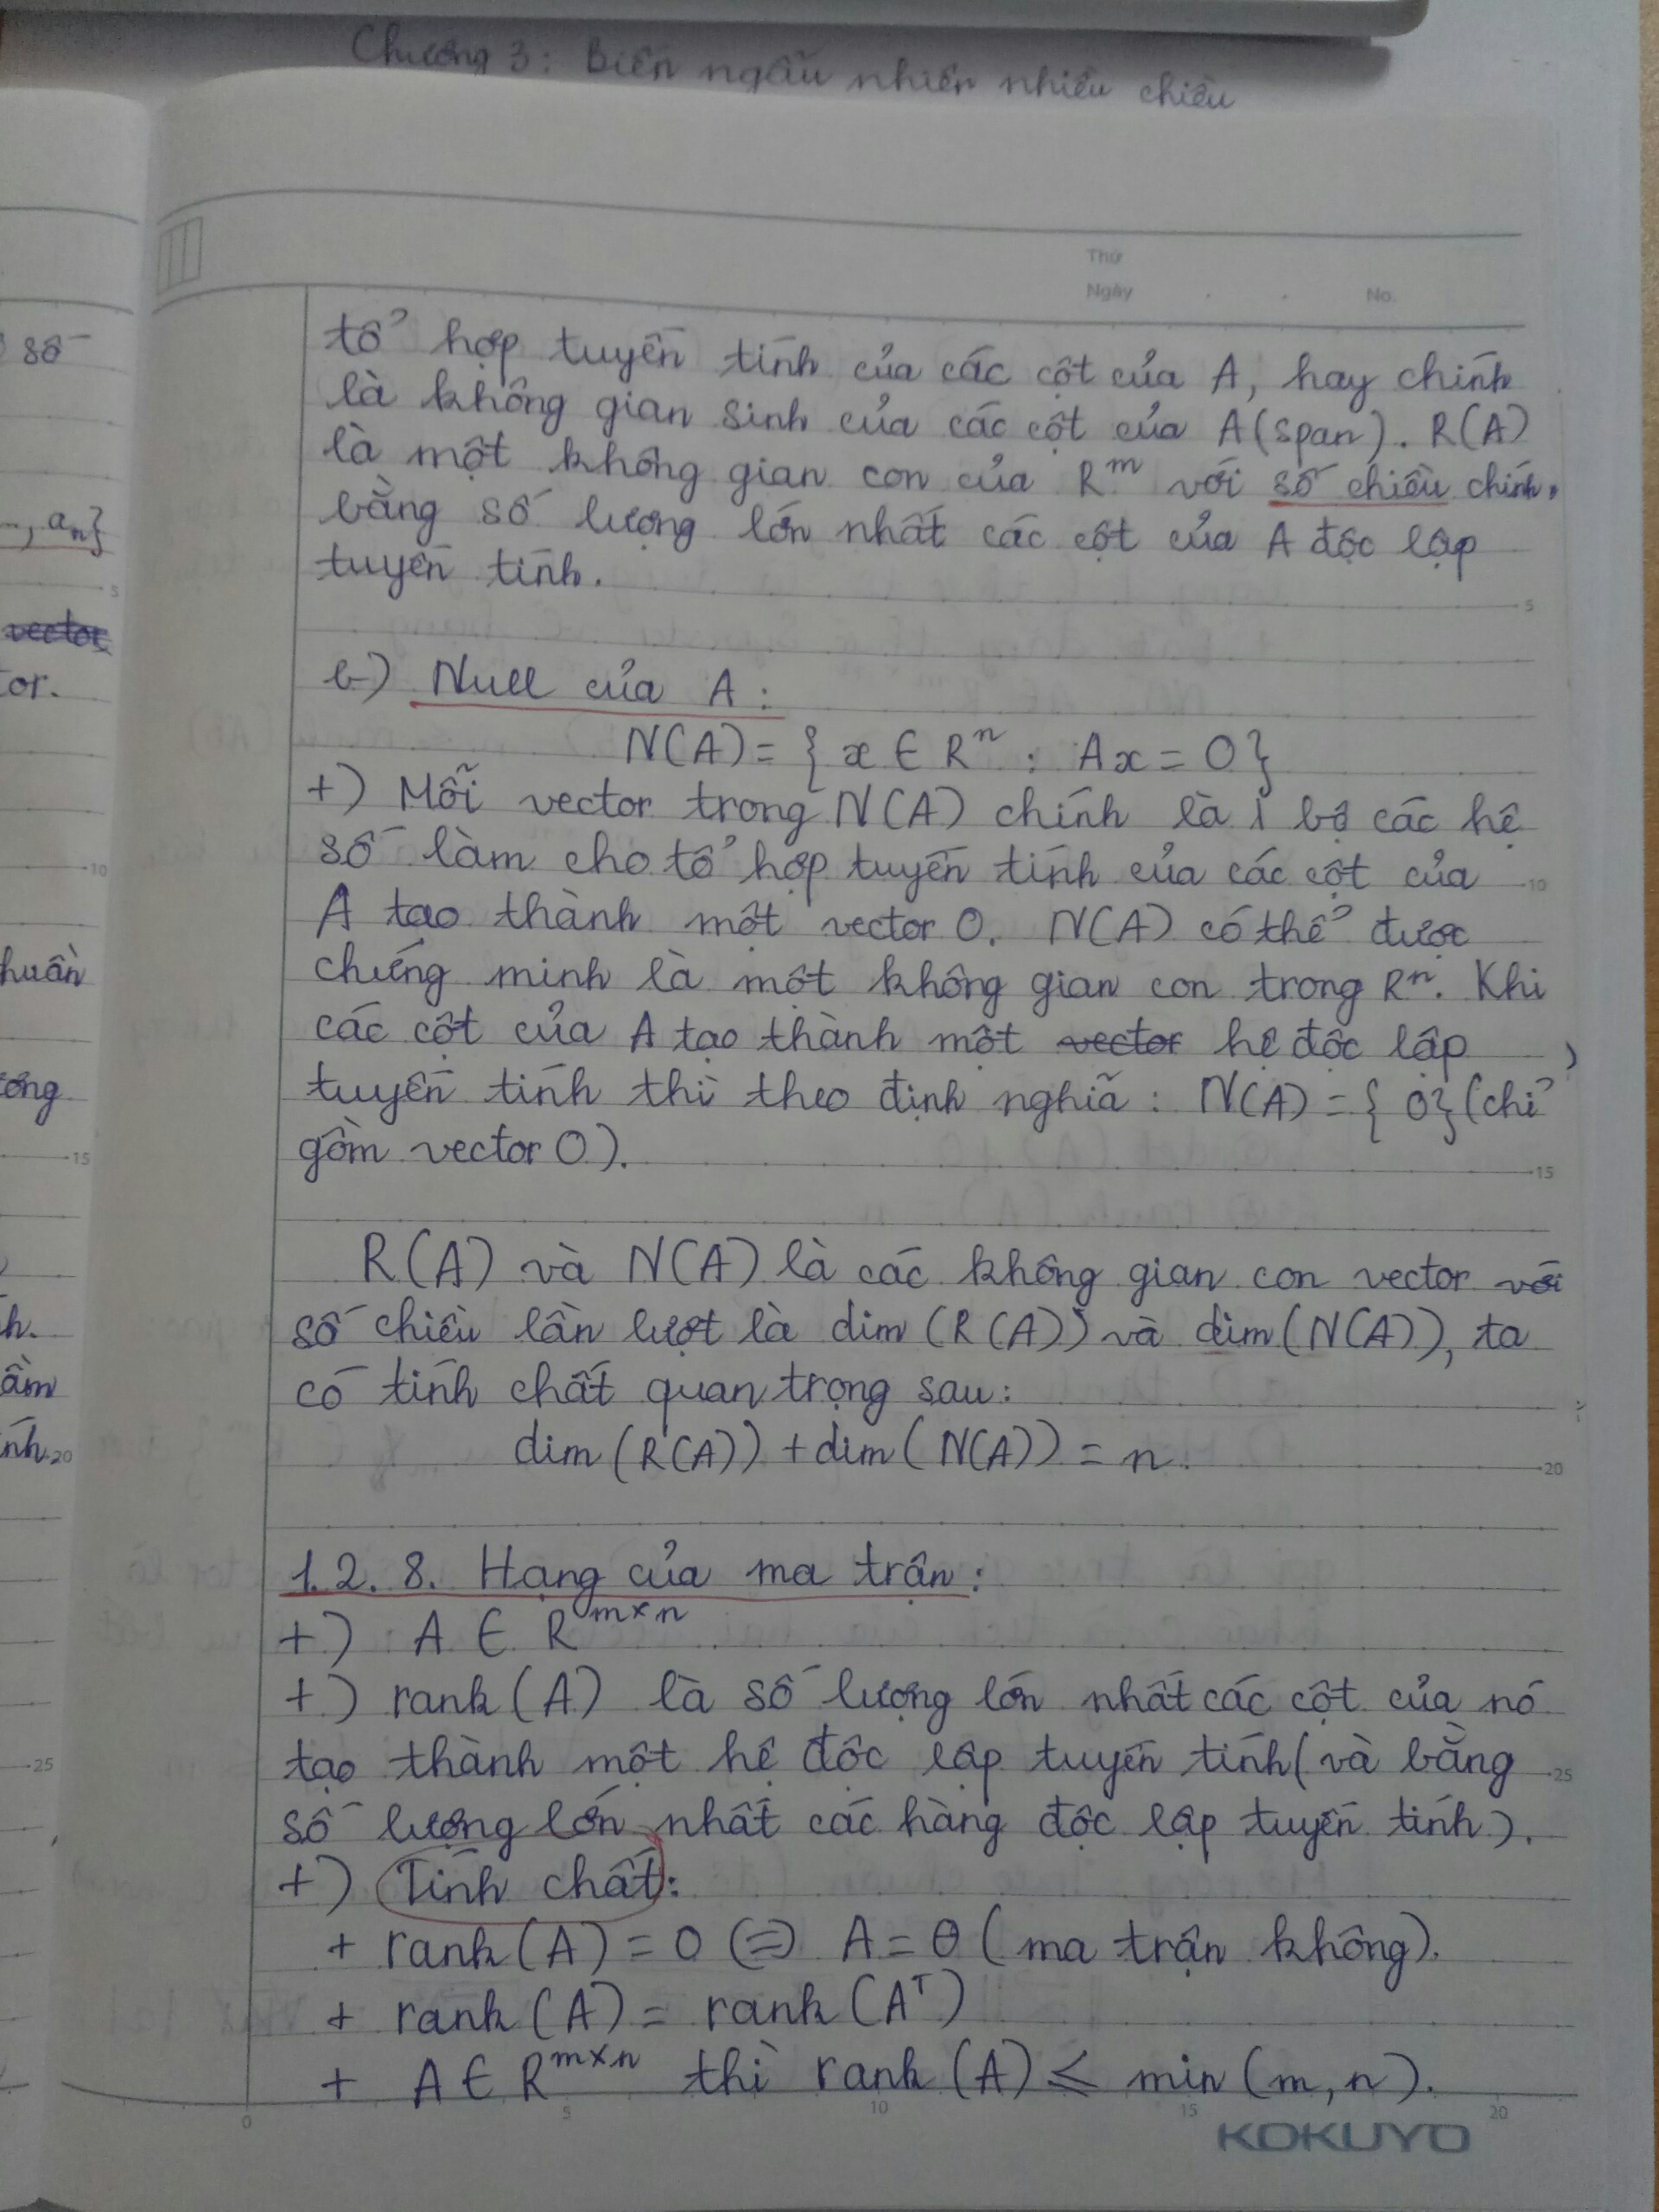 Chương 3: Biến ngẫu nhiên nhiều chiều
Thứ
Ngày . . No.
số
..., aₙ}
5
vector
tor.
10
huần
ơng
15
h.
ầm
ính.
20
25
tổ hợp tuyến tính của các cột của A, hay chính
là không gian sinh của các cột của A (span). R(A)
là một không gian con của Rᵐ với số chiều chính
bằng số lượng lớn nhất các cột của A độc lập
tuyến tính.
5
b) Null của A:
N(A) = { x ∈ Rⁿ : Ax = 0}
+) Mỗi vector trong N(A) chính là 1 bộ các hệ
số làm cho tổ hợp tuyến tính của các cột của
10
A tạo thành một vector 0. N(A) có thể được
chứng minh là một không gian con trong Rⁿ. Khi
các cột của A tạo thành một vector hệ độc lập
tuyến tính thì theo định nghĩa: N(A) = { 0} (chỉ
gồm vector 0).
15
R(A) và N(A) là các không gian con vector với
số chiều lần lượt là dim (R(A)) và dim (N(A)), ta
có tính chất quan trọng sau:
dim (R(A)) + dim (N(A)) = n.
20
1.2.8. Hạng của ma trận:
+) A ∈ Rᵐˣⁿ
+) rank (A) là số lượng lớn nhất các cột của nó
tạo thành một hệ độc lập tuyến tính (và bằng
25
số lượng lớn nhất các hàng độc lập tuyến tính).
+) Tính chất:
+ rank (A) = 0 (=) A = θ (ma trận không).
+ rank (A) = rank (Aᵀ)
+ A ∈ Rᵐˣⁿ thì rank (A) ⩽ min (m, n).
0 5 10 15 20
KOKUYO